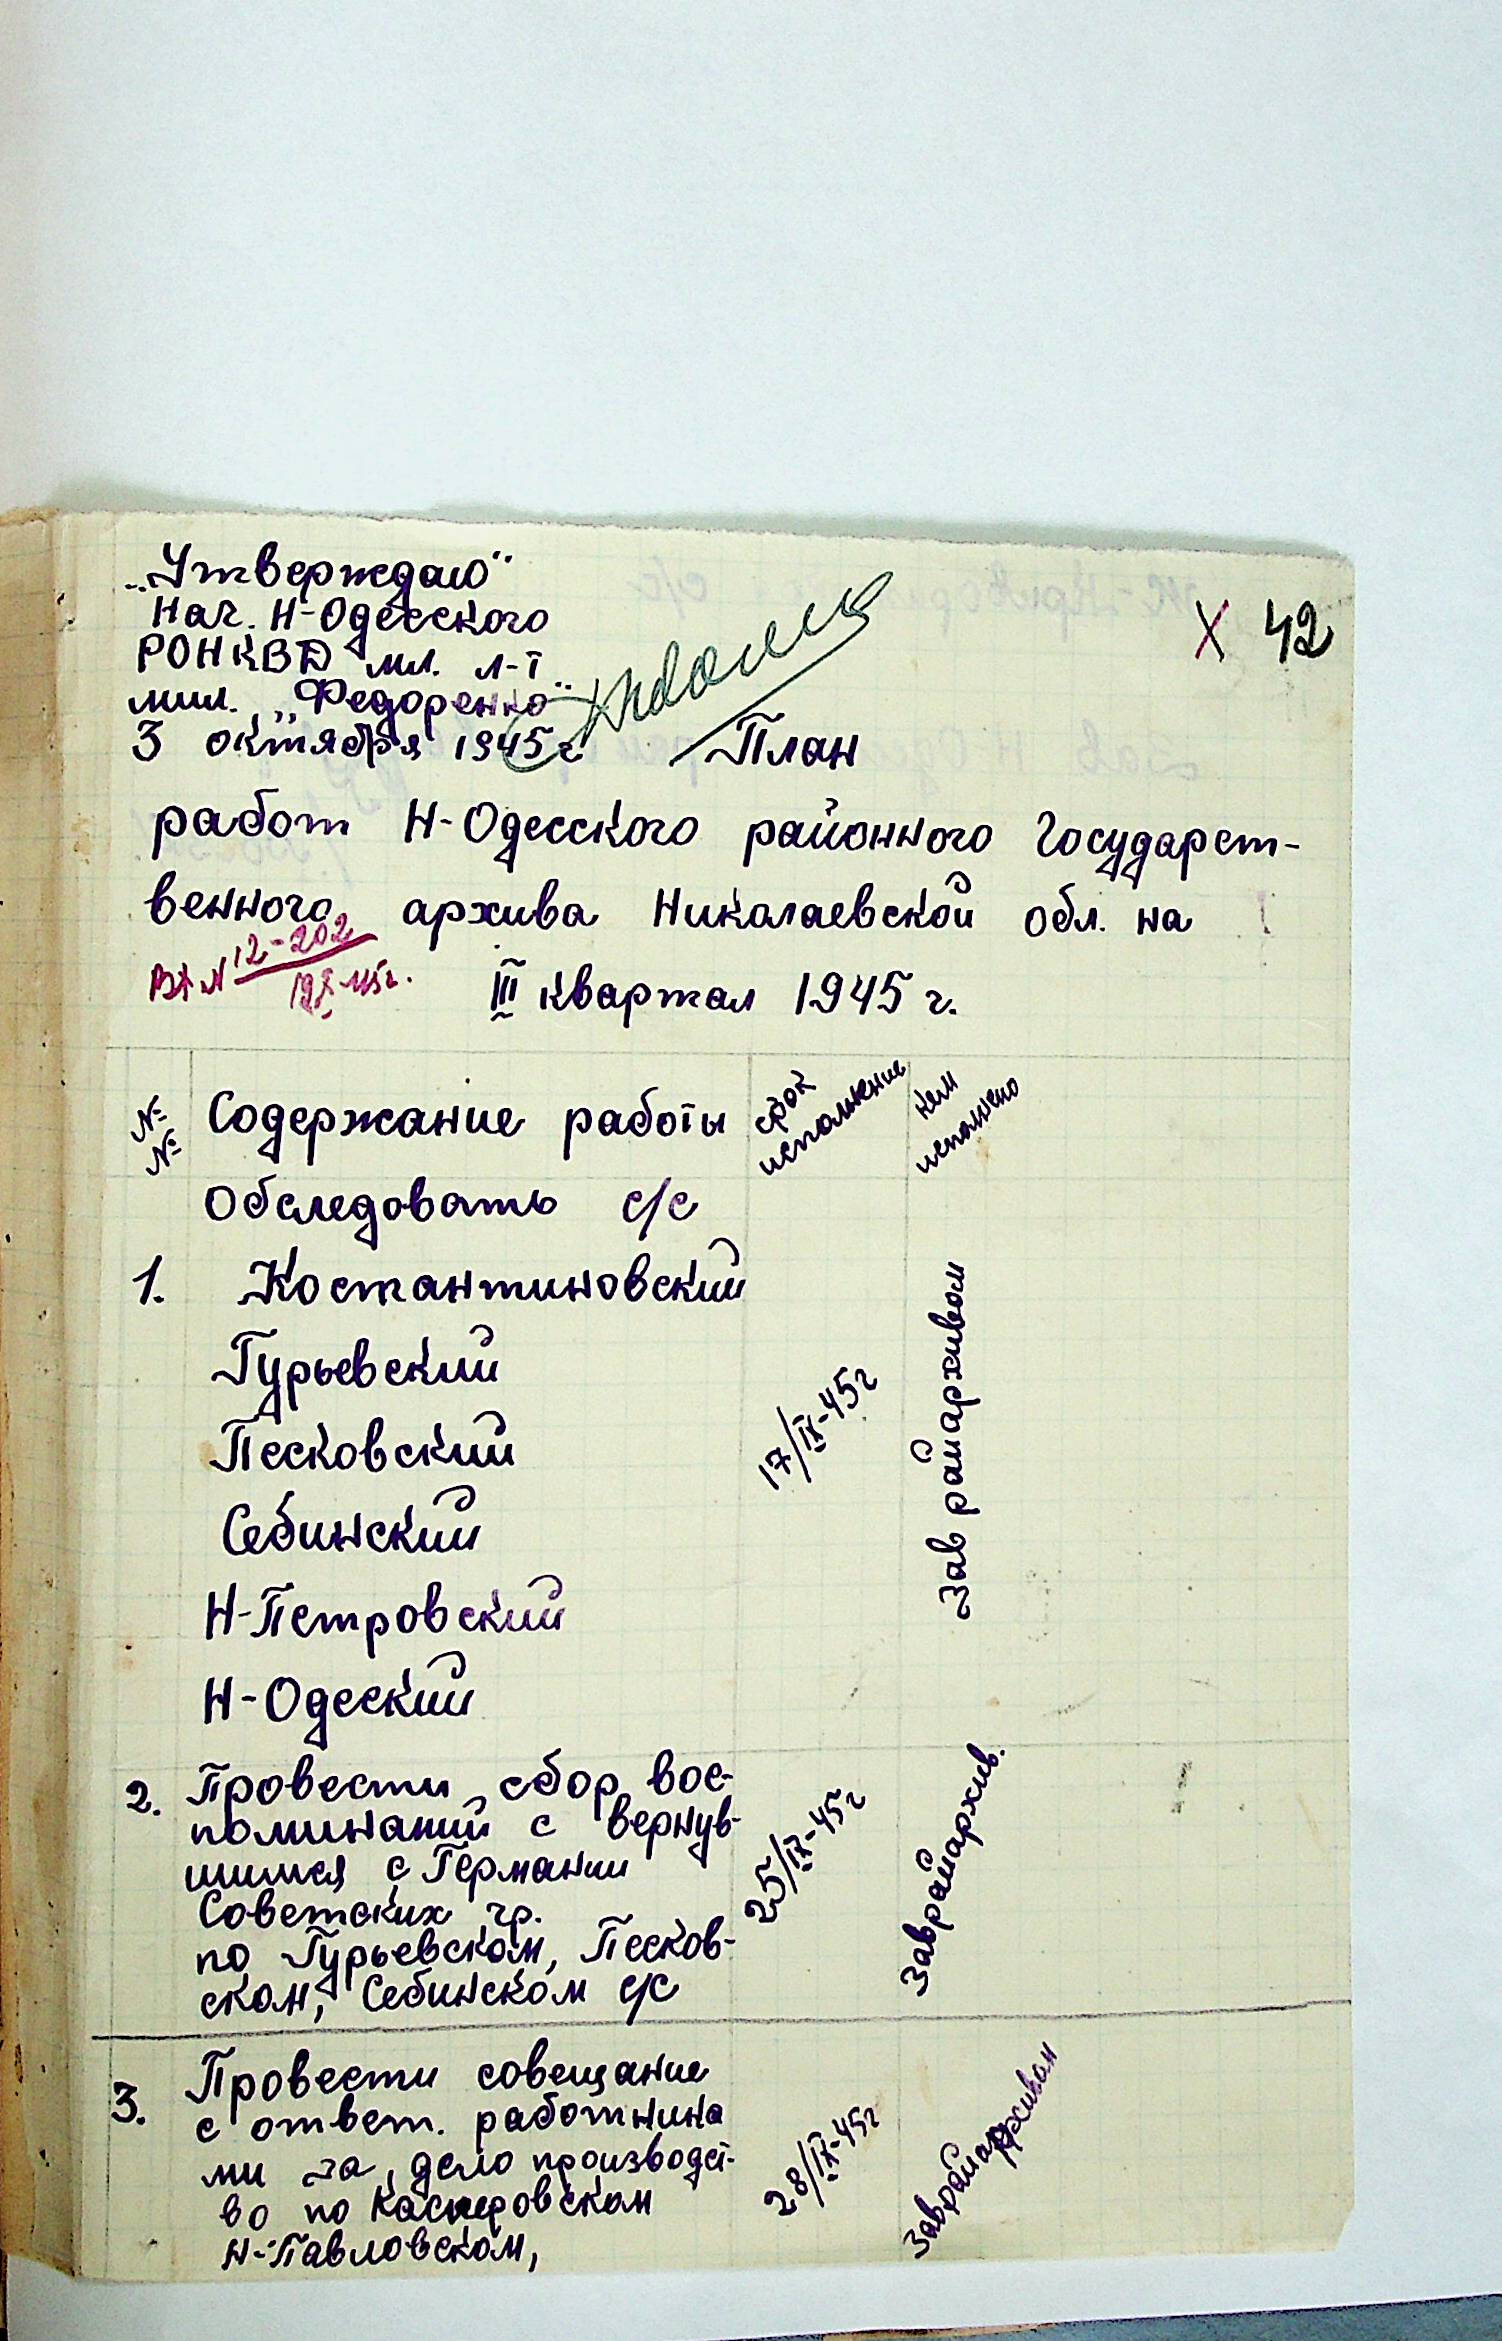 „Утверждаю“
Нач. Н-Одесского
РОНКВД мл. л-т
мил. „Федоренко“
3 октября 1945 г.
Х 42
План
работ Н-Одесского районного Государст-
венного архива Николаевской обл. на
Вх N 12-202
19/X-45г.
III квартал 1945 г.
№ № Содержание работы срок исполнение кем исполнено
Обследовать с/с
1. Костантиновский
Гурьевский
Песковский
Себинский
Н-Петровский
Н-Одеский
17/IX-45г
Зав райархивом
2. Провести сбор вос-
поминаний с вернув-
шимся с Германии
Советских гр.
по Гурьевском, Песков-
ском, Себинском с/с
25/IX-45г
Заврайархив.
3. Провести совещание
с ответ. работника
ми за дело производст-
во по Касперовском
Н-Павловском,
28/IX-45г
Заврайархивом